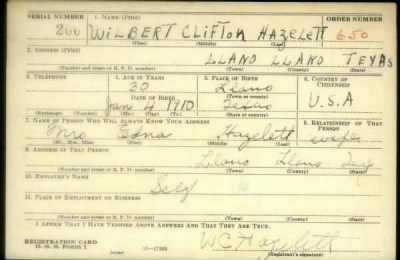 SERIAL NUMBER 1. NAME (Print) ORDER NUMBER
266 WILBERT CLIFTON HAZELETT 650
(First) (Middle) (Last)
2. ADDRESS (Print)
LLANO LLANO TEXAS
(Number and street or R. F. D. number) (Town) (County) (State)
3. TELEPHONE 4. AGE IN YEARS 5. PLACE OF BIRTH 6. COUNTRY OF CITIZENSHIP
30 Llano
DATE OF BIRTH (Town or county)
Jan 4 1910 Texas U.S.A
(Exchange) (Number) (Mo.) (Day) (Yr.) (State or country)
7. NAME OF PERSON WHO WILL ALWAYS KNOW YOUR ADDRESS 8. RELATIONSHIP OF THAT PERSON
Mrs Edna Hazelett wife
(Mr., Mrs., Miss) (First) (Middle) (Last)
9. ADDRESS OF THAT PERSON
Llano Llano Tex
(Number and street or R. F. D. number) (Town) (County) (State)
10. EMPLOYER'S NAME
Self
11. PLACE OF EMPLOYMENT OR BUSINESS
(Number and street or R. F. D. number) (Town) (County) (State)
I AFFIRM THAT I HAVE VERIFIED ABOVE ANSWERS AND THAT THEY ARE TRUE.
REGISTRATION CARD
D. S. S. FORM 1 W C Hazelett
(Registrant's signature)